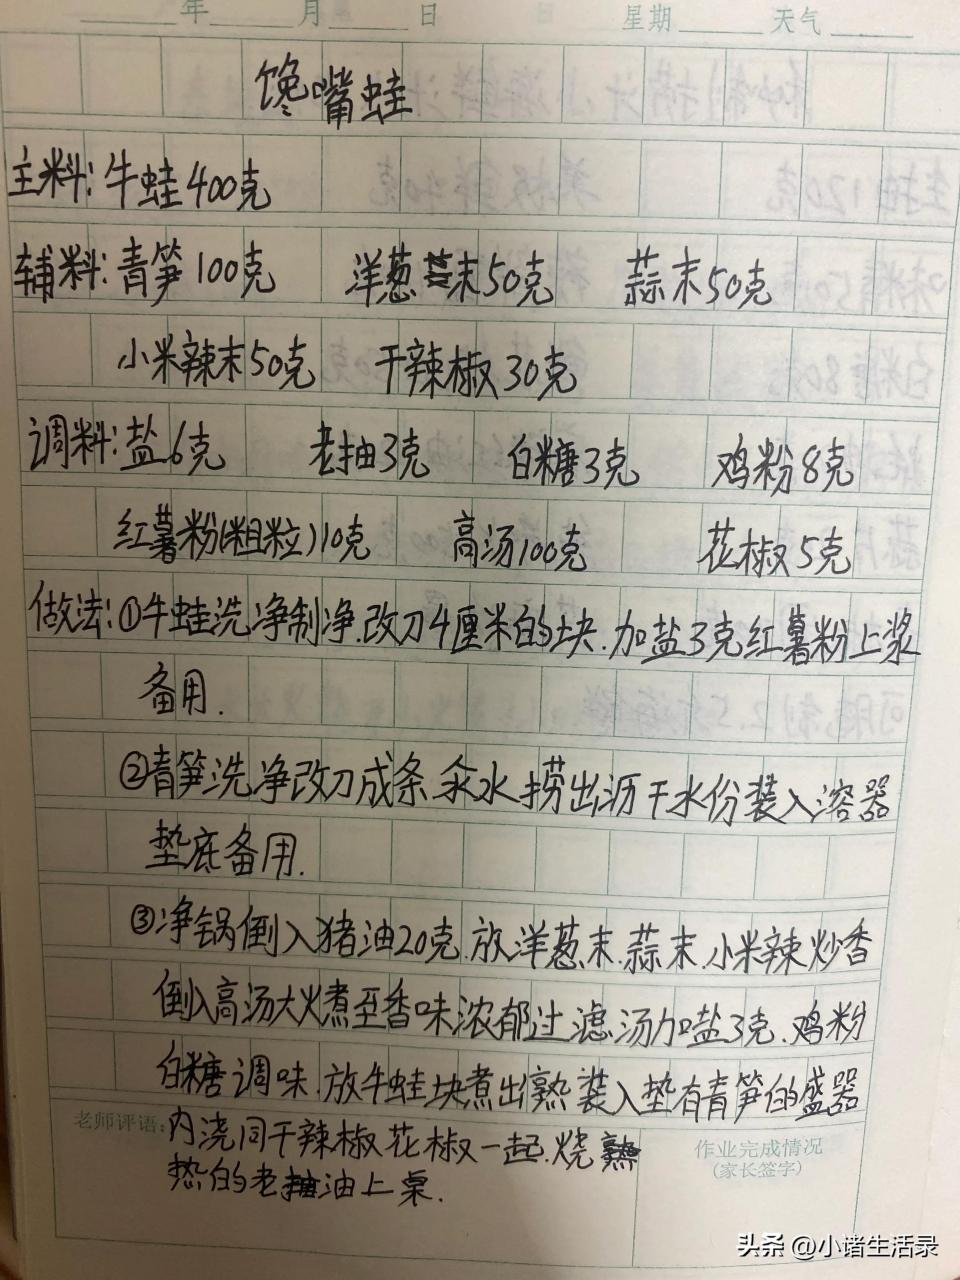 年 月 日 星期 天气
馋嘴蛙
主料:牛蛙400克
辅料:青笋100克 洋葱末50克 蒜末50克
小米辣末50克 干辣椒30克
调料:盐6克 老抽3克 白糖3克 鸡粉8克
红薯粉(粗粒)10克 高汤100克 花椒5克
做法:①牛蛙洗净制净.改刀4厘米的块.加盐3克红薯粉上浆
备用.
②青笋洗净改刀成条.汆水捞出沥干水份装入溶器
垫底备用.
③净锅倒入猪油20克.放洋葱末.蒜末.小米辣炒香
倒入高汤大火煮至香味浓郁过滤.汤加盐3克.鸡粉
白糖调味.放牛蛙块煮出熟装入垫有青笋的盛器
老师评语:内浇同干辣椒花椒一起.烧熟
热的老油上桌.
作业完成情况
(家长签字)
头条 @小诸生活录